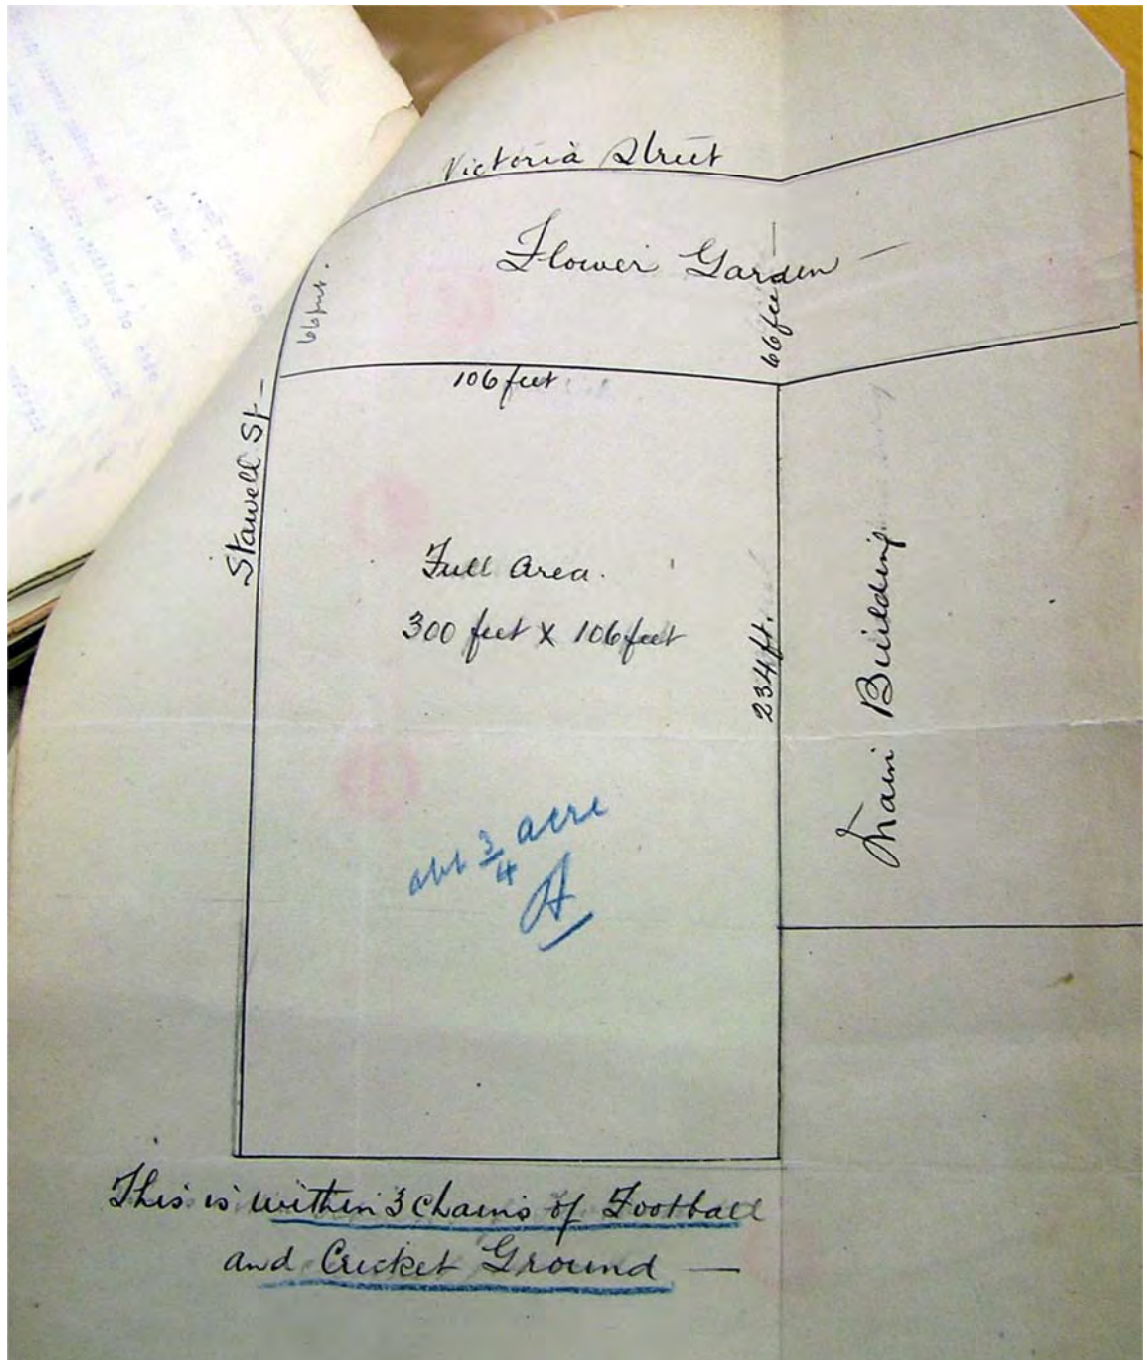 Victoria Street
Flower Garden
66 feet.
66 feet
106 feet
Stawell St
Full Area.
300 feet X 106 feet
234 ft.
Main Building
abt 3/4 acre
A
This is within 3 chains of Football
and Cricket Ground